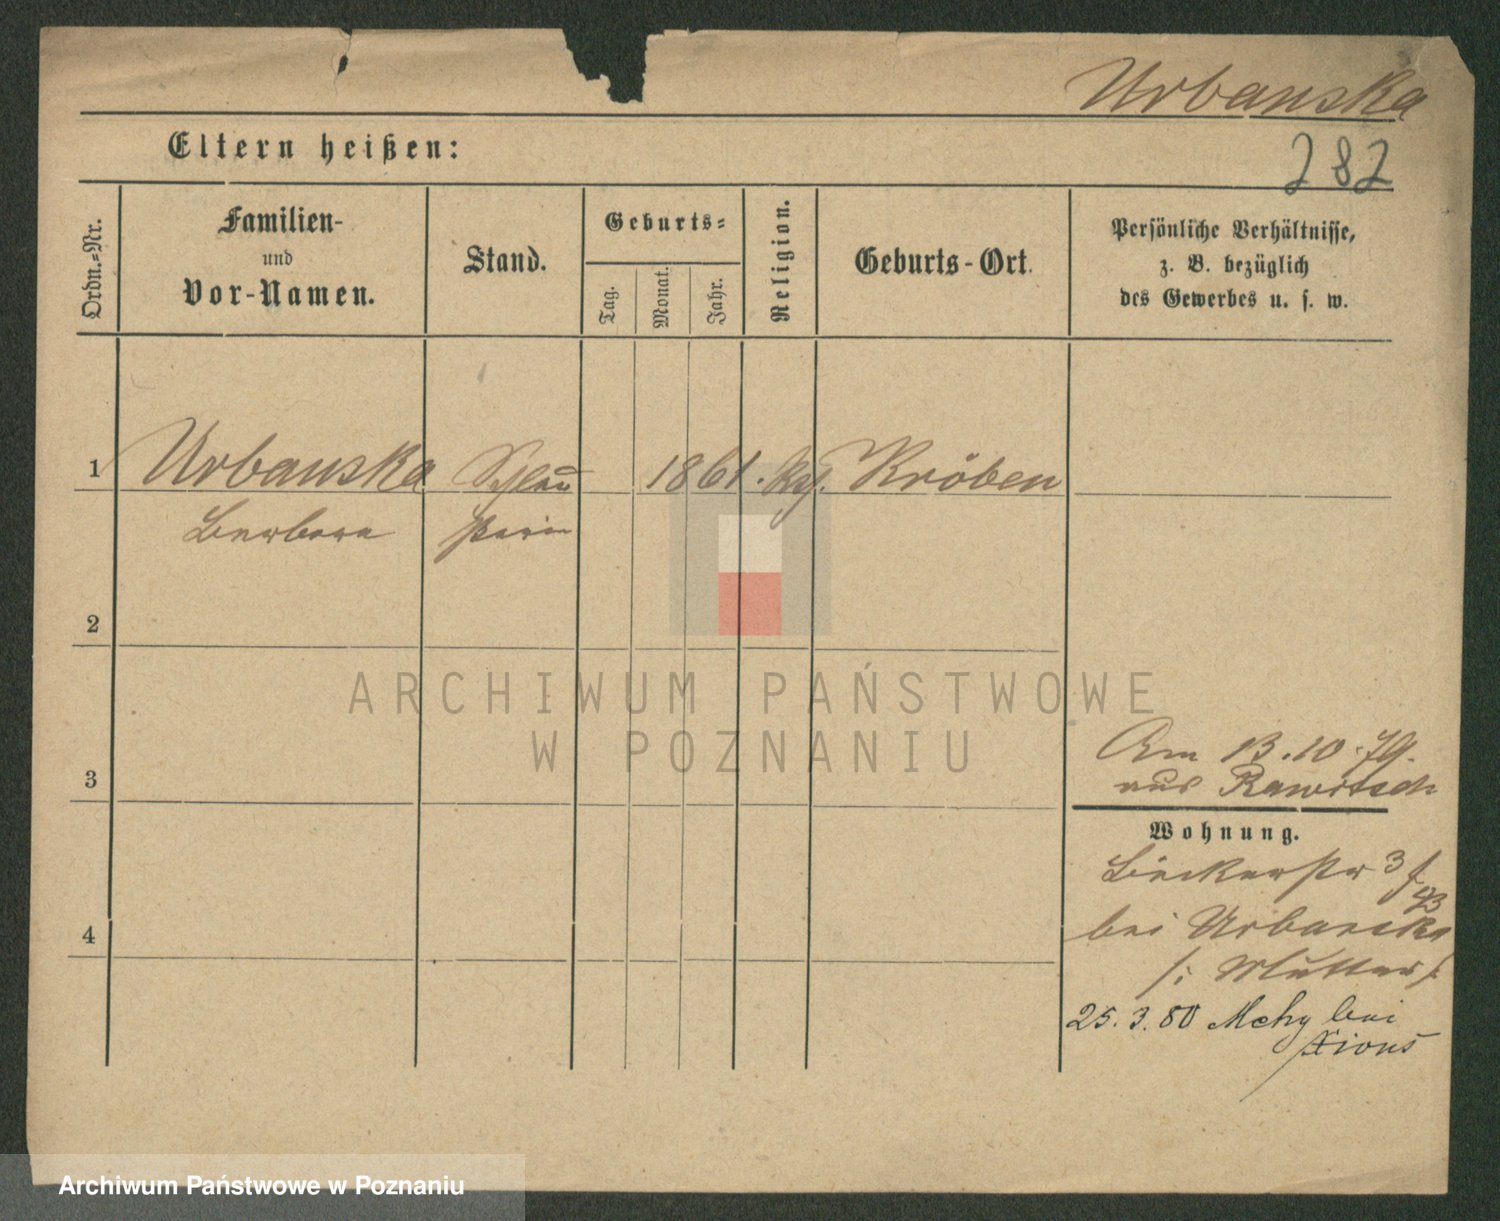 Urbanska
282
Eltern heißen:
Ordn.-Nr.
Familien-
und
Vor-Namen.
Stand.
Geburts-
Tag.
Monat.
Jahr.
Religion.
Geburts-Ort.
Persönliche Verhältnisse,
z. B. bezüglich
des Gewerbes u. s. w.
1 Urbanska 1861. Kröben
Barbara
2
3
4
Am 13.10.79.
aus Rawitsch
Wohnung.
Bäckerstr 3
bei Urbanska
Mutter
25.3.80 Mchy bei
Xions
ARCHIWUM PAŃSTWOWE
W POZNANIU
Archiwum Państwowe w Poznaniu